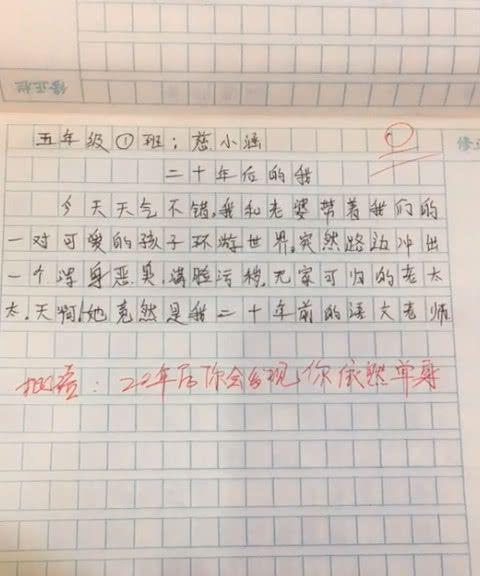 修正栏
五年级①班：慈小涵
二十年后的我
今天天气不错,我和老婆带着我们的
一对可爱的孩子环游世界,突然路边冲出
一个浑身恶臭,满脸污秽,无家可归的老太
太,天啊!她竟然是我二十年前的语文老师
批语：22年后你会发现你依然单身